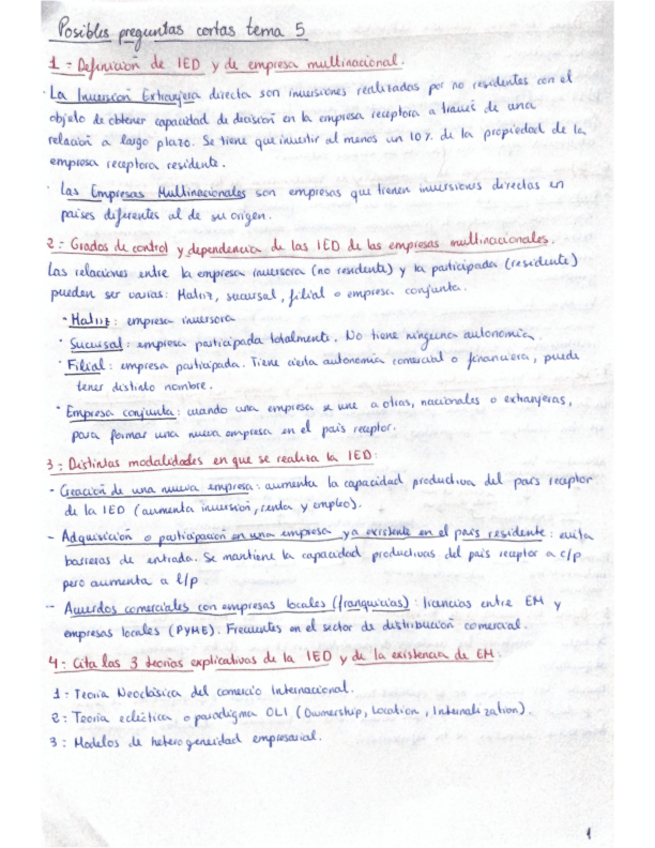 Posibles preguntas cortas tema 5
1 = Definición de IED y de empresa multinacional.
· La Inversión Extranjera directa son inversiones realizadas por no residentes con el
objeto de obtener capacidad de decisión en la empresa receptora a través de una
relación a largo plazo. Se tiene que invertir al menos un 10% de la propiedad de la
empresa receptora residente.
· Las Empresas Multinacionales son empresas que tienen inversiones directas en
países diferentes al de su origen.
2 = Grados de control y dependencia de las IED de las empresas multinacionales.
Las relaciones entre la empresa inversora (no residente) y la participada (residente)
pueden ser varias: Matriz, sucursal, filial o empresa conjunta.
· Matriz: empresa inversora
· Sucursal: empresa participada totalmente. No tiene ninguna autonomía.
· Filial: empresa participada. Tiene cierta autonomía comercial o financiera, puede
tener distinto nombre.
· Empresa conjunta: cuando una empresa se une a otras, nacionales o extranjeras,
para formar una nueva empresa en el país receptor.
3 = Distintas modalidades en que se realiza la IED:
- Creación de una nueva empresa: aumenta la capacidad productiva del país receptor
de la IED (aumenta inversión, renta y empleo).
- Adquisición o participación en una empresa ya existente en el país residente: evita
barreras de entrada. Se mantiene la capacidad productivas del país receptor a c/p
pero aumenta a l/p.
- Acuerdos comerciales con empresas locales (franquicias): licencias entre EM y
empresas locales (PYME). Frecuentes en el sector de distribución comercial.
4 = Cita las 3 teorías explicativas de la IED y de la existencia de EM:
1 = Teoría Neoclásica del comercio Internacional.
2 = Teoría ecléctica o paradigma OLI (Ownership, Location, Internalization).
3 = Modelos de heterogeneidad empresarial.
1